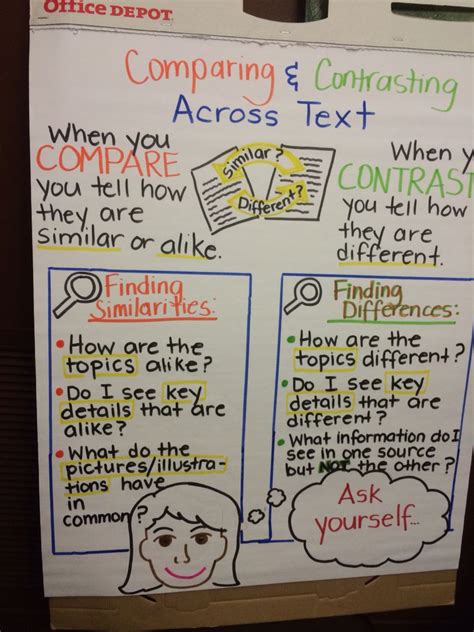 Office DEPOT
Comparing & Contrasting
Across Text
When you
COMPARE
you tell how
they are
similar or alike.
Similar?
Different?
When y
CONTRAS
you tell how
they are
different.
Finding
Similarities:
• How are the
topics alike?
• Do I see key
details that are
alike?
• What do the
pictures/illustra-
tions have
in
common?
Finding
Differences:
• How are the
topics different?
• Do I see key
details that are
different?
• What information do I
see in one source
but NOT the other?
Ask
yourself...